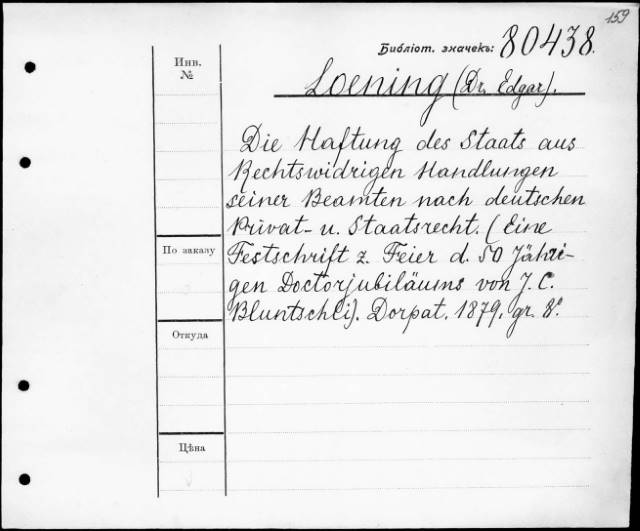 159
Библіот. значекъ: 80438.
Инв.
№
Loening (Dr. Edgar).
Die Haftung des Staats aus
Rechtswidrigen Handlungen
seiner Beamten nach deutschen
Privat- u. Staatsrecht. (Eine
По заказу
Festschrift z. Feier d. 50 Jähri-
gen Doctorjubiläums von J. C.
Bluntschli). Dorpat. 1879. gr. 8º.
Откуда
Цѣна